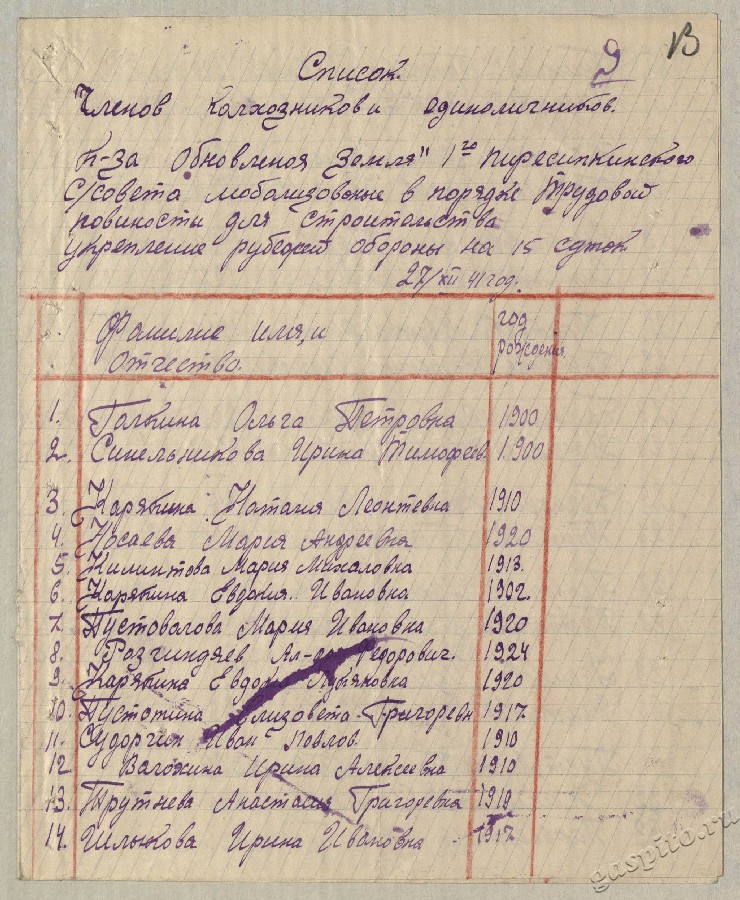 9 13
Список.
Членов колхозников и единоличников.
К-за Обновленоя Земля" 1го Пиресипкинского
с/совета мобализованые в порядке трудовой
повиности для строительства
укрепление рубежей обороны на 15 суток
27/XII 41 год.
Фамилие имя, и год
отчество. рождения.
1. Галкина Ольга Петровна 1900
2. Синельникова Ирина Тимофеев. 1.900
3. Карябина Наталия Леонтевна 1910
4. Носаева Мария Андреевна 1920
5. Килинтова Мария Михаловна 1913.
6. Карябина Евдокия. Ивановна 1902.
7. Пустовалова Мария Ивановна 1920
8. Розгиндяев Федорович. 1924
9. Карябина 1920
10. Пустотина Григоревн 1917
11. Судоргин Иван Павлов. 1910
12 Валохина Ирина Алексеевна 1910
13. Трутнева Анастасия Григоревна 1910
14. Шлыкова Ирина Ивановна 1917
gaspito.ru